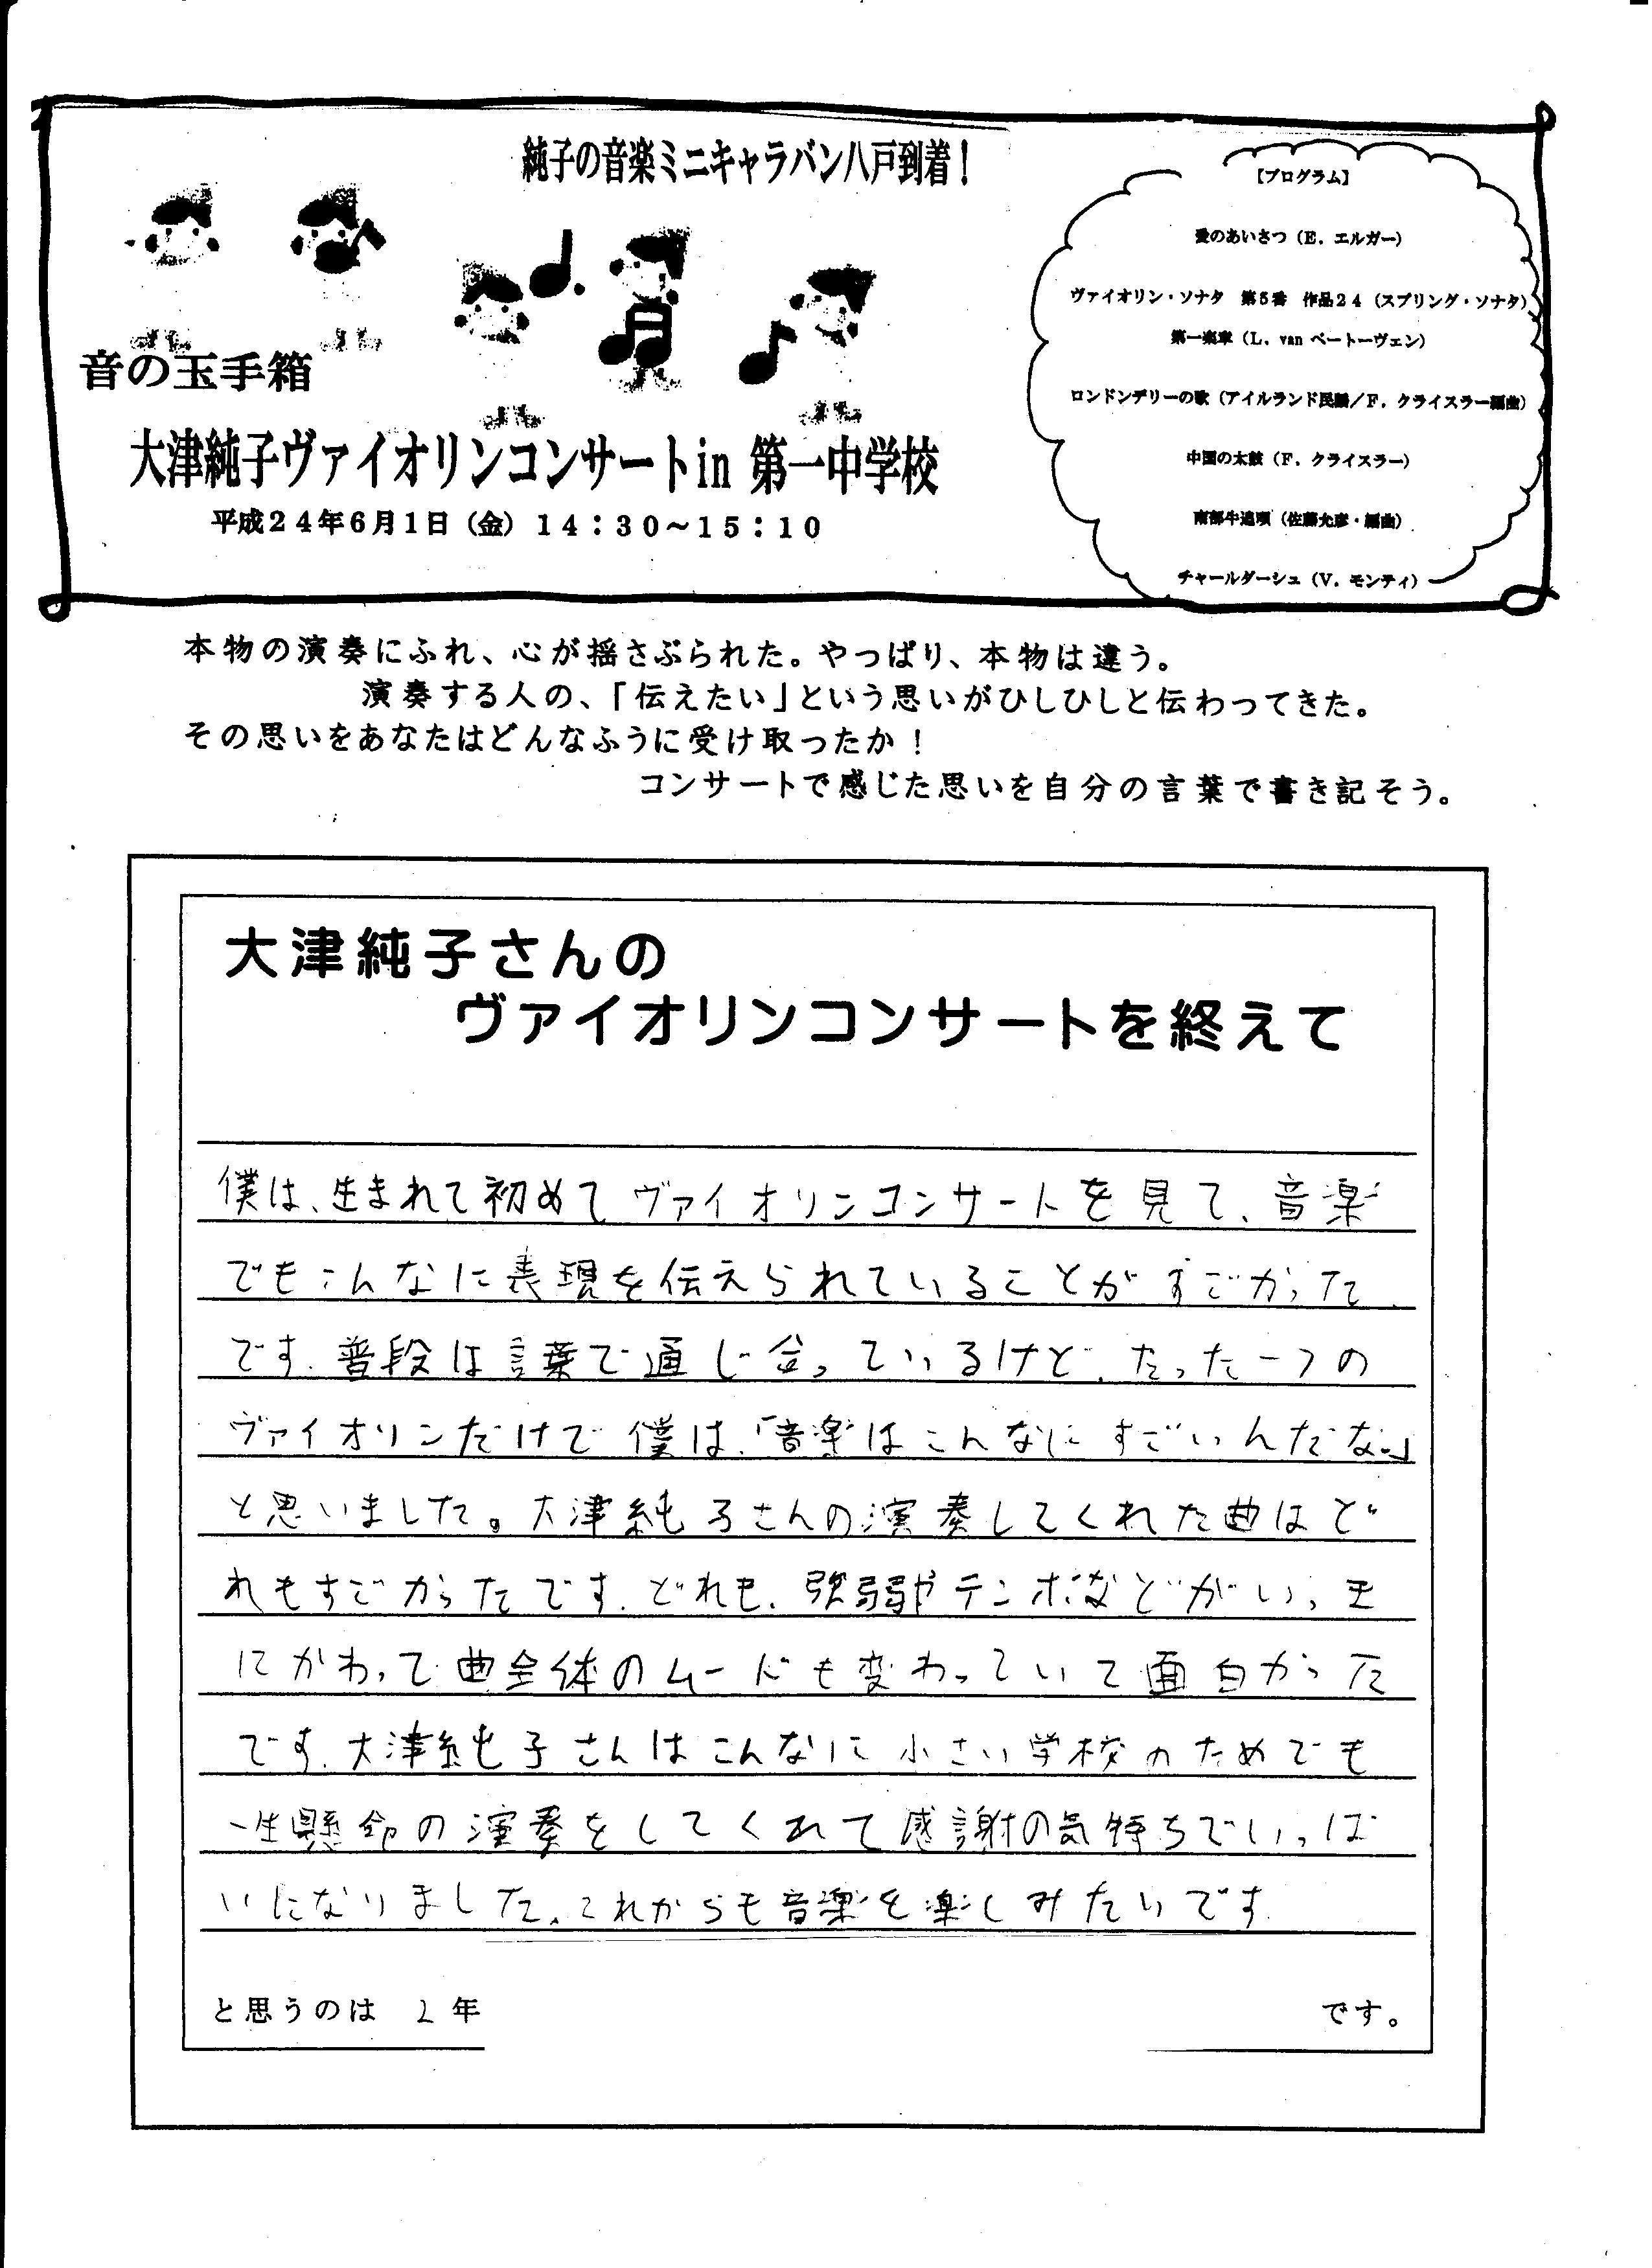 純子の音楽ミニキャラバン八戸到着！
音の玉手箱
大津純子ヴァイオリンコンサートin 第一中学校
平成２４年６月１日（金）１４：３０～１５：１０
【プログラム】
愛のあいさつ（E．エルガー）
ヴァイオリン・ソナタ　第５番　作品２４（スプリング・ソナタ）
第一楽章（L．van ベートーヴェン）
ロンドンデリーの歌（アイルランド民謡／F．クライスラー編曲）
中国の太鼓（F．クライスラー）
南部牛追唄（佐藤允彦・編曲）
チャールダーシュ（V．モンティ）
本物の演奏にふれ、心が揺さぶられた。やっぱり、本物は違う。
演奏する人の、「伝えたい」という思いがひしひしと伝わってきた。
その思いをあなたはどんなふうに受け取ったか！
コンサートで感じた思いを自分の言葉で書き記そう。
大津純子さんの
ヴァイオリンコンサートを終えて
僕は、生まれて初めてヴァイオリンコンサートを見て、音楽
でもこんなに表現を伝えられていることがすごかった
です。普段は言葉で通じ合っているけど、たった一つの
ヴァイオリンだけで僕は、「音楽はこんなにすごいんだな。」
と思いました。大津純子さんの演奏してくれた曲はど
れもすごかったです。どれも、強弱やテンポなどがいっき
にかわって曲全体のムードも変わっていて面白かった
です。大津純子さんはこんなに小さい学校のためでも
一生懸命の演奏をしてくれて感謝の気持ちでいっぱ
いになりました。これからも音楽を楽しみたいです。
と思うのは　２年　です。